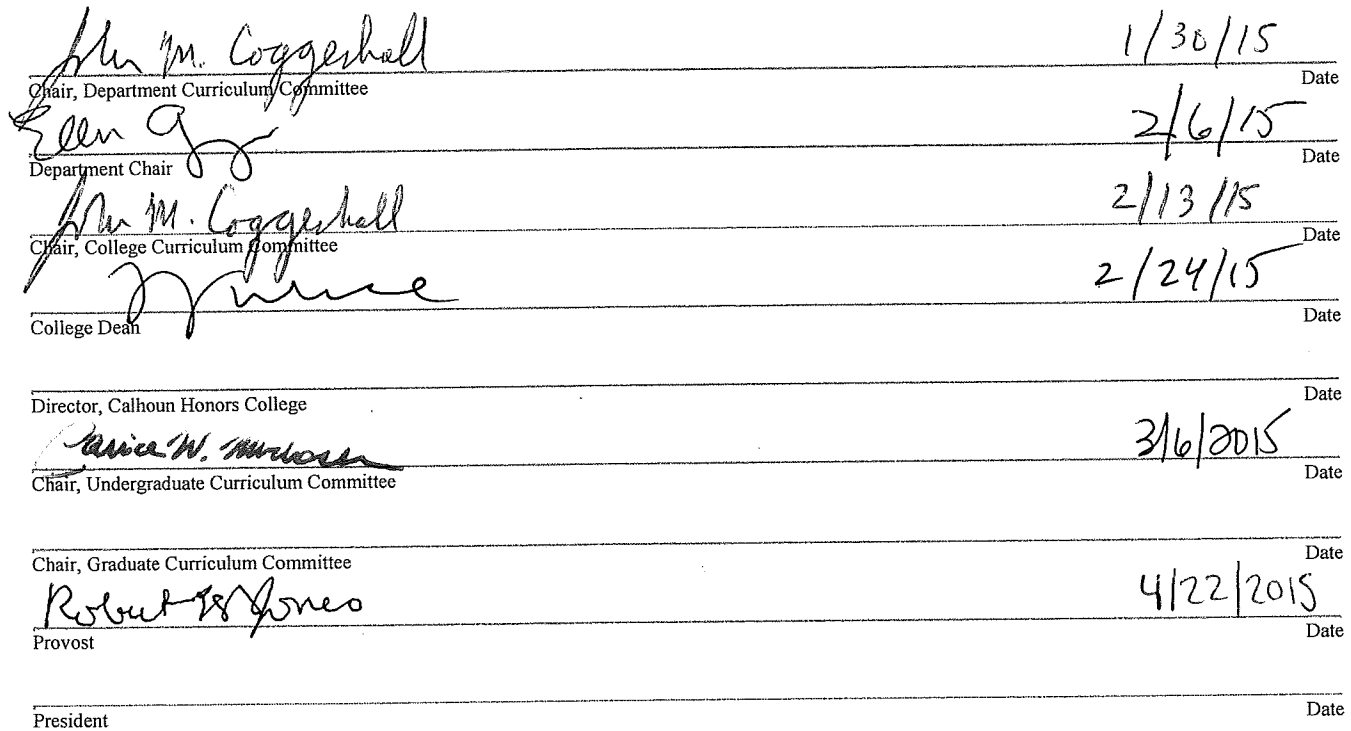 John M. Coggeshall 1/30/15
Chair, Department Curriculum Committee Date
2/6/15
Department Chair Date
John M. Coggeshall 2/13/15
Chair, College Curriculum Committee Date
2/24/15
College Dean Date
Director, Calhoun Honors College Date
Janice W. 3/6/2015
Chair, Undergraduate Curriculum Committee Date
Chair, Graduate Curriculum Committee Date
Robert Jones 4/22/2015
Provost Date
President Date